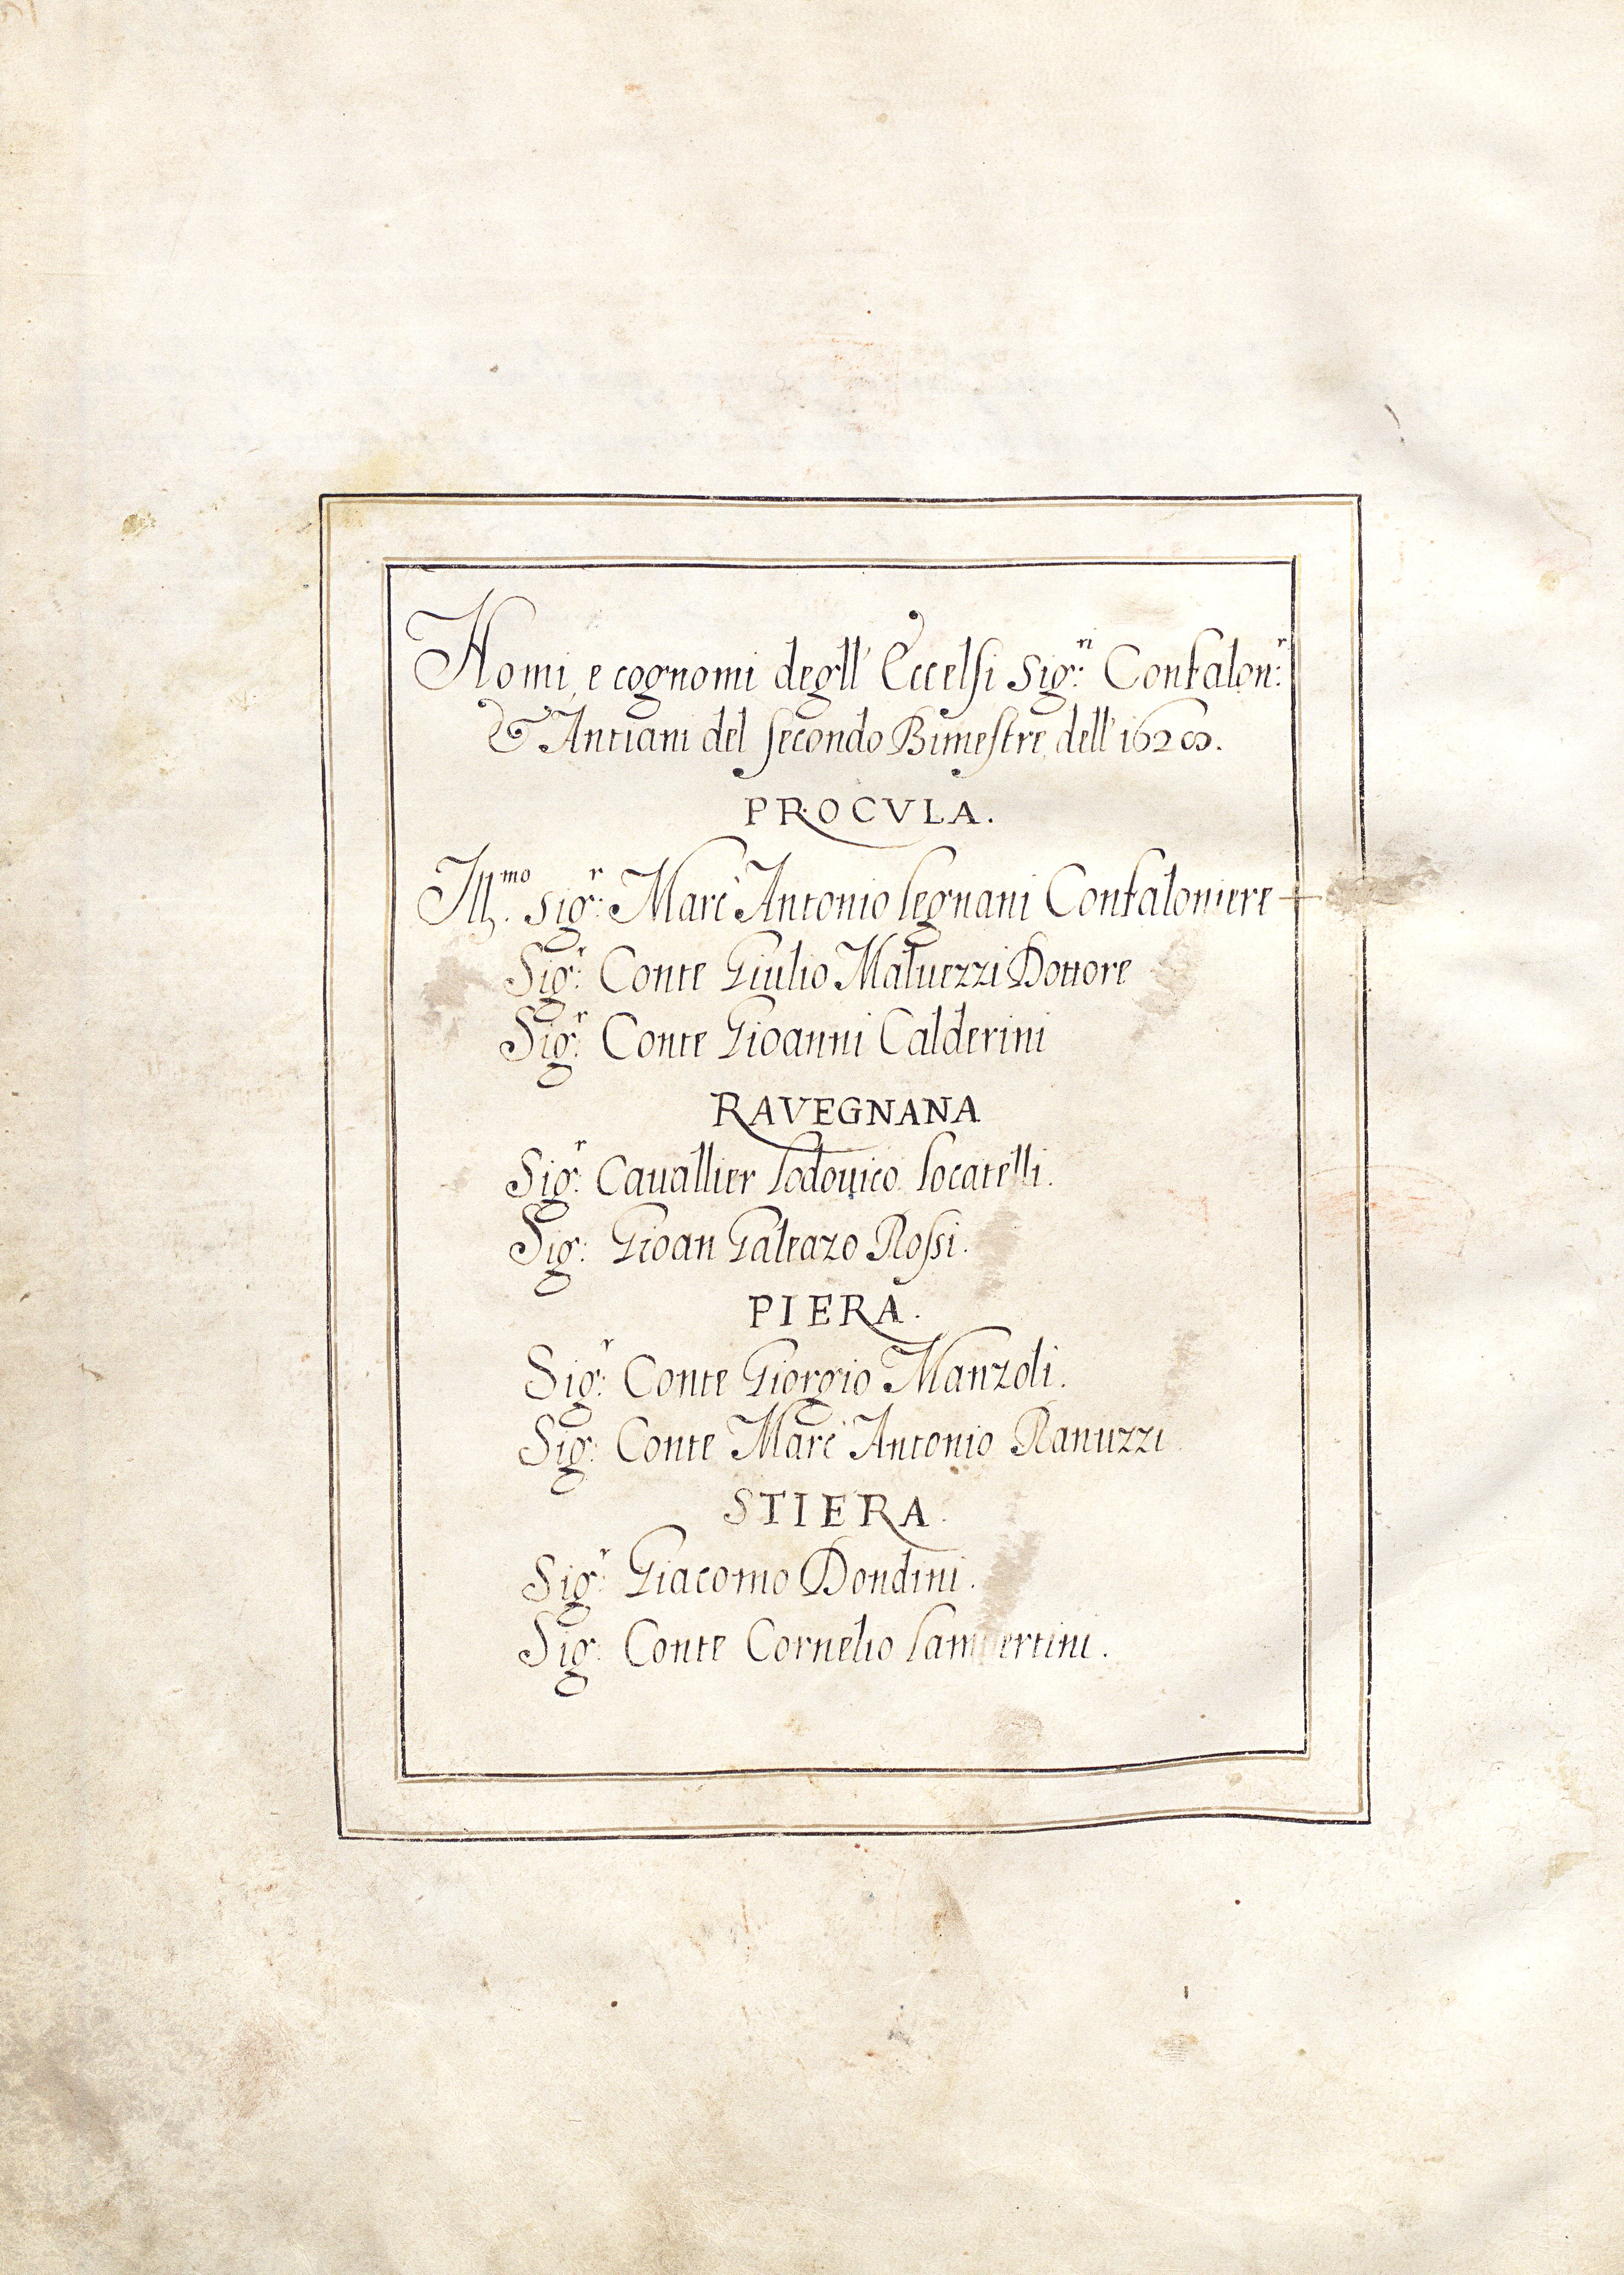 Nomi, e cognomi degll' Eccelsi Sig.ri Confalon.r
& Antiani del secondo Bimestre dell' 1628.
PROCVLA.
Ill.mo Sig.r Marc' Antonio Legnani Confaloniere
Sig.r Conte Giulio Maluezzi Dottore
Sig.r Conte Gioanni Calderini
RAVEGNANA
Sig.r Cauallier Lodouico Locatelli.
Sig: Gioan Galeazo Rossi.
PIERA.
Sig.r Conte Giorgio Manzoli.
Sig: Conte Marc' Antonio Ranuzzi
STIERA.
Sig.r Giacomo Dondini.
Sig: Conte Cornelio Lambertini.